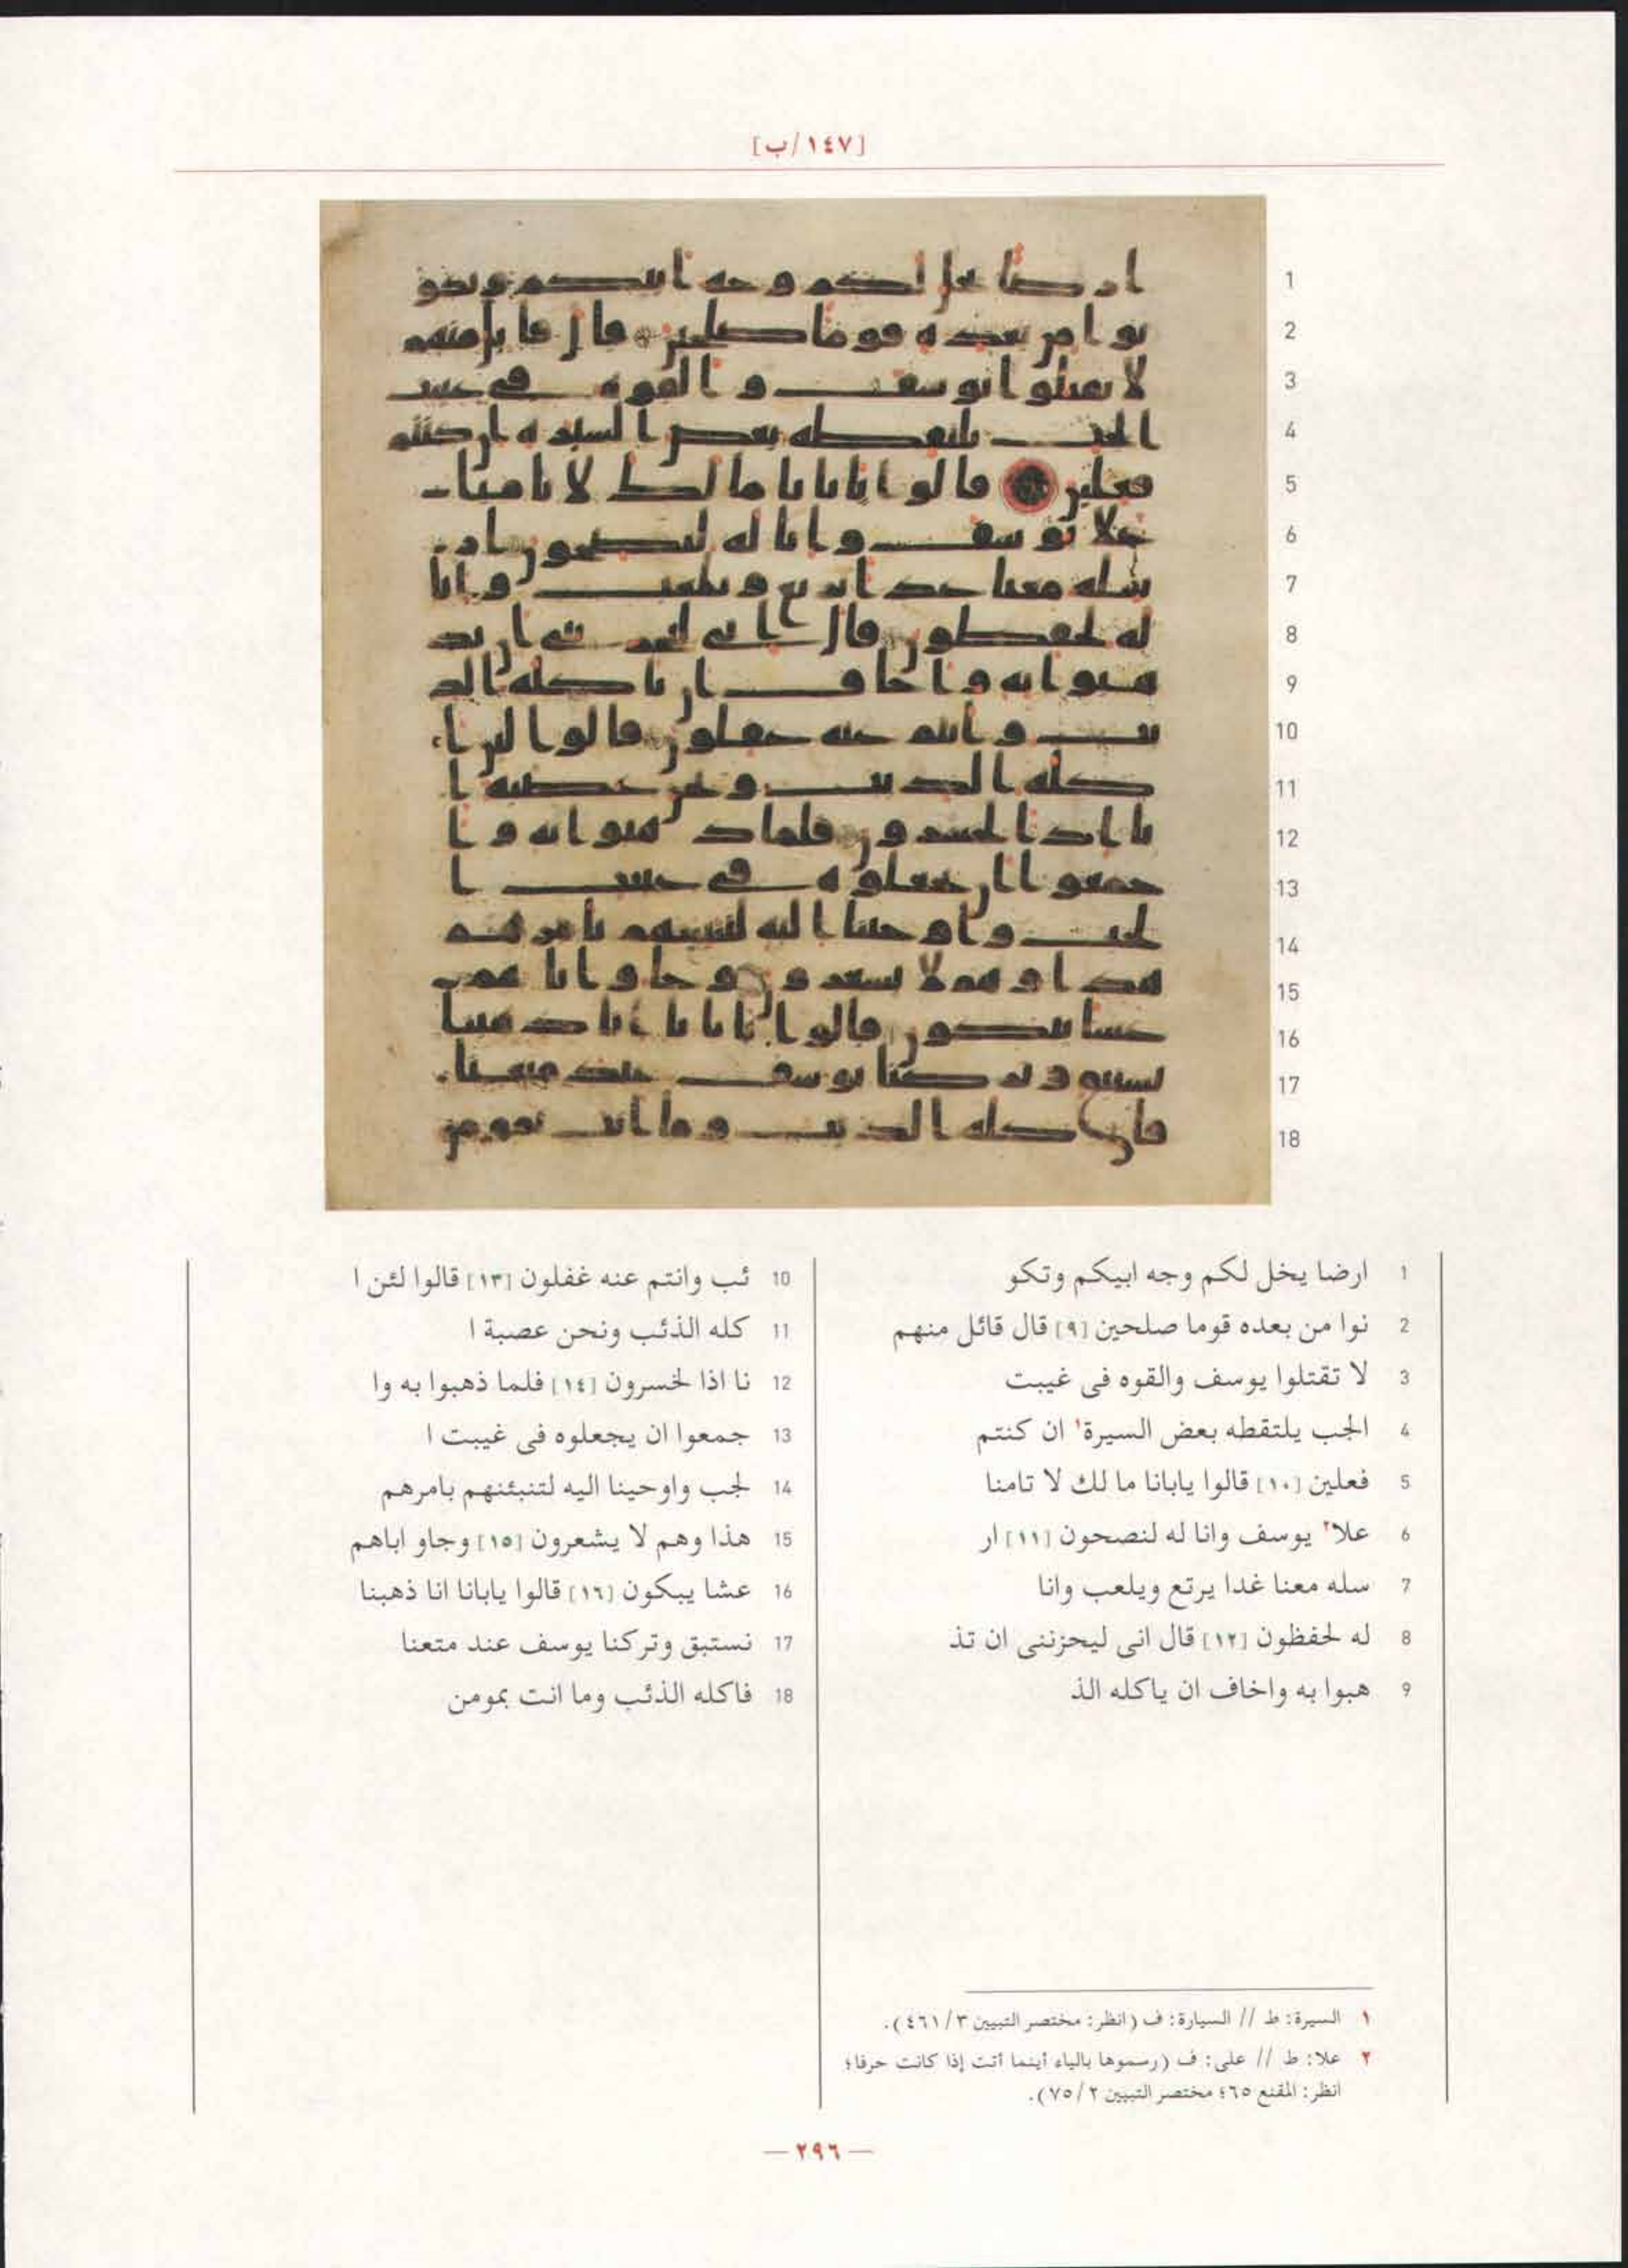 [١٤٧/ب]
1 ارضا يخل لكم وجه ابيكم وتكو
2 نوا من بعده قوما صلحين [٩] قال قائل منهم
3 لا تقتلوا يوسف والقوه فى غيبت
4 الجب يلتقطه بعض السيرة١ ان كنتم
5 فعلين [١٠] قالوا يابانا ما لك لا تامنا
6 علا٢ يوسف وانا له لنصحون [١١] ار
7 سله معنا غدا يرتع ويلعب وانا
8 له لحفظون [١٢] قال انى ليحزننى ان تذ
9 هبوا به واخاف ان ياكله الذ
10 ئب وانتم عنه غفلون [١٣] قالوا لئن ا
11 كله الذئب ونحن عصبة ا
12 نا اذا لخسرون [١٤] فلما ذهبوا به وا
13 جمعوا ان يجعلوه فى غيبت ا
14 لجب واوحينا اليه لتنبئنهم بامرهم
15 هذا وهم لا يشعرون [١٥] وجاو اباهم
16 عشا يبكون [١٦] قالوا يابانا انا ذهبنا
17 نستبق وتركنا يوسف عند متعنا
18 فاكله الذئب وما انت بمومن
١ السيرة: ط // السيارة: ف (انظر: مختصر التبيين ٣/ ٤٦١).
٢ علا: ط // على: ف (رسموها بالياء أينما أتت إذا كانت حرفا؛
انظر: المقنع ٦٥؛ مختصر التبيين ٢/ ٧٥).
— ٢٩٦ —